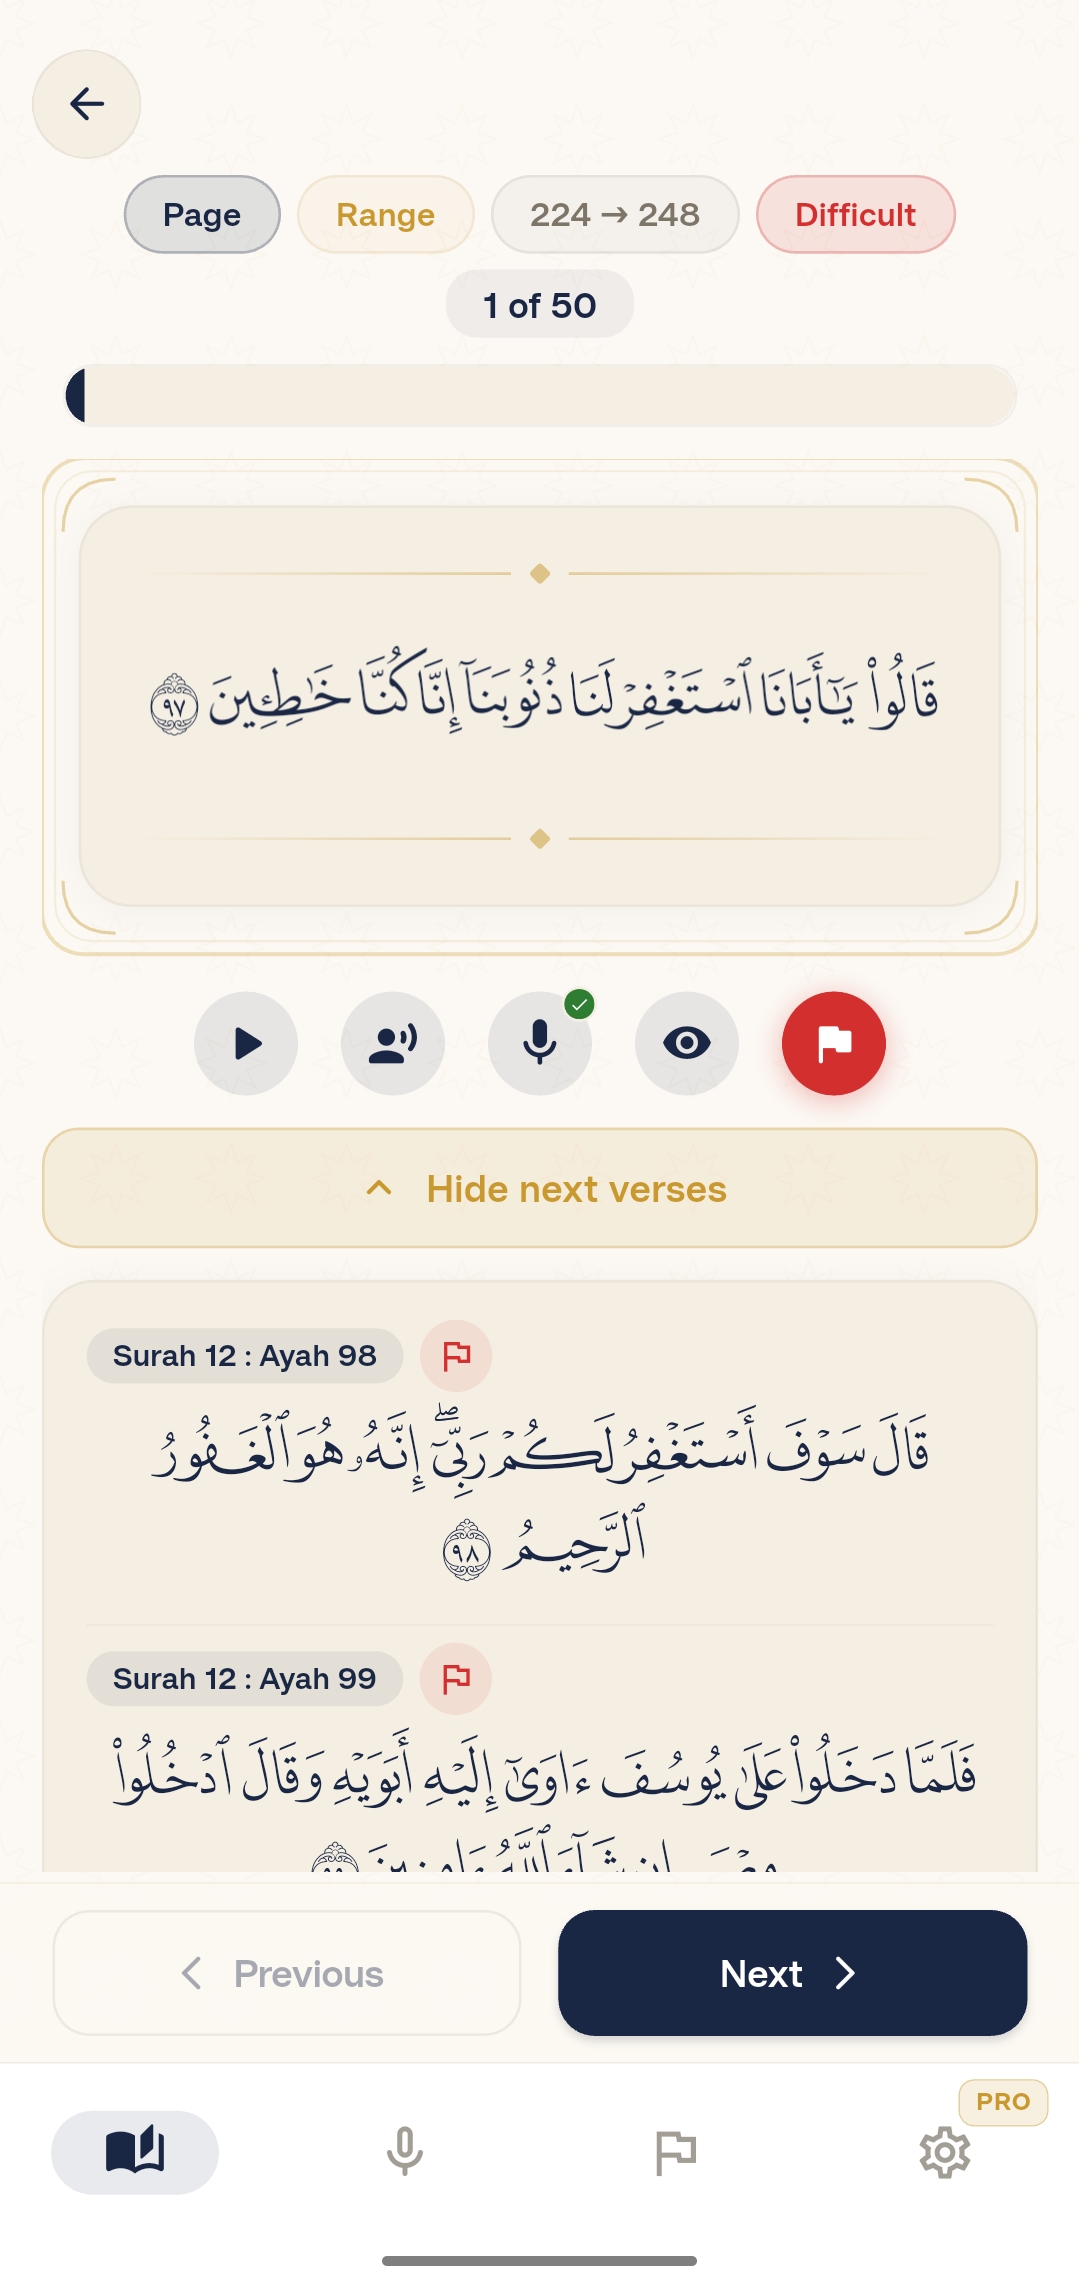 Page
Range
224 → 248
Difficult
1 of 50
قَالُوا۟ يَـٰٓأَبَانَا ٱسْتَغْفِرْ لَنَا ذُنُوبَنَآ إِنَّا كُنَّا خَـٰطِـِٔينَ ٩٧
Hide next verses
Surah 12 : Ayah 98
قَالَ سَوْفَ أَسْتَغْفِرُ لَكُمْ رَبِّىٓ ۖ إِنَّهُۥ هُوَ ٱلْغَفُورُ
ٱلرَّحِيمُ ٩٨
Surah 12 : Ayah 99
فَلَمَّا دَخَلُوا۟ عَلَىٰ يُوسُفَ ءَاوَىٰٓ إِلَيْهِ أَبَوَيْهِ وَقَالَ ٱدْخُلُوا۟
Previous
Next
PRO